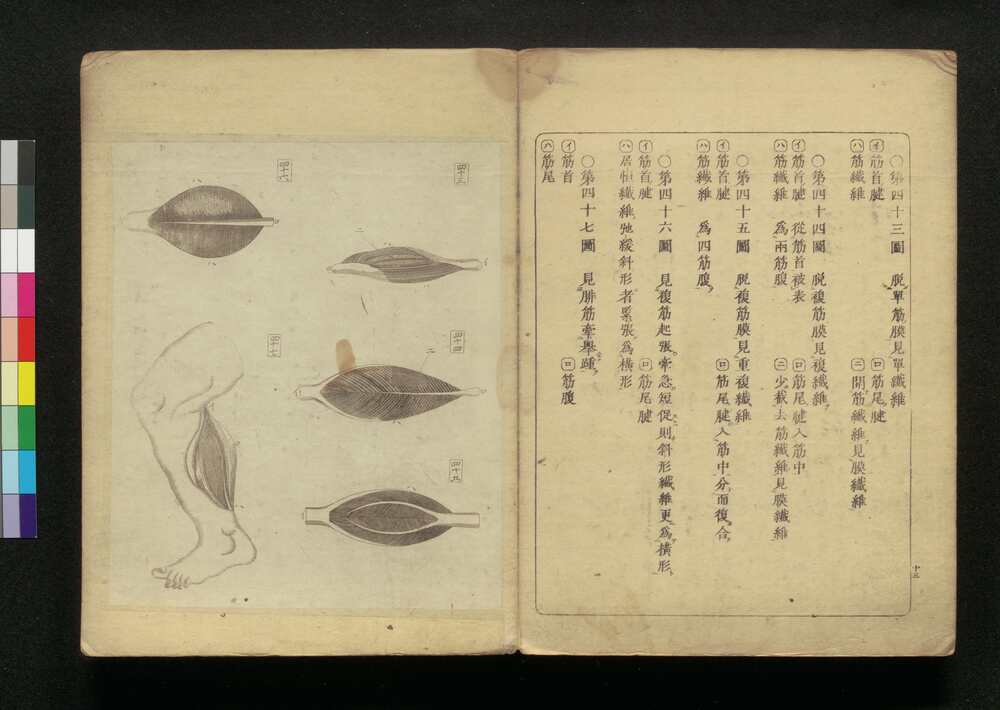 ○第四十三圖　脫單筋膜見單纖維
㋑筋首腱　㋺筋尾腱
㋩筋纖維　㊁開筋纖維見膜纖維
○第四十四圖　脫複筋膜見複纖維
㋑筋首腱　從筋首被表　㋺筋尾腱入筋中
㋩筋纖維　爲兩筋腹　㊁少截去筋纖維見膜纖維
○第四十五圖　脫複筋膜見重複纖維
㋑筋首腱　㋺筋尾腱入筋中分而復合
㋩筋纖維　爲四筋腹
○第四十六圖　見複筋起張牽急短促則斜形纖維更爲橫形
㋑筋首腱　㋺筋尾腱
㋩居恒纖維弛緩斜形者緊張爲橫形
○第四十七圖　見腓筋牽擧踵
㋑筋首　㋺筋腹
㋩筋尾
十三
四十三
四十四
四十五
四十六
四十七
二
二